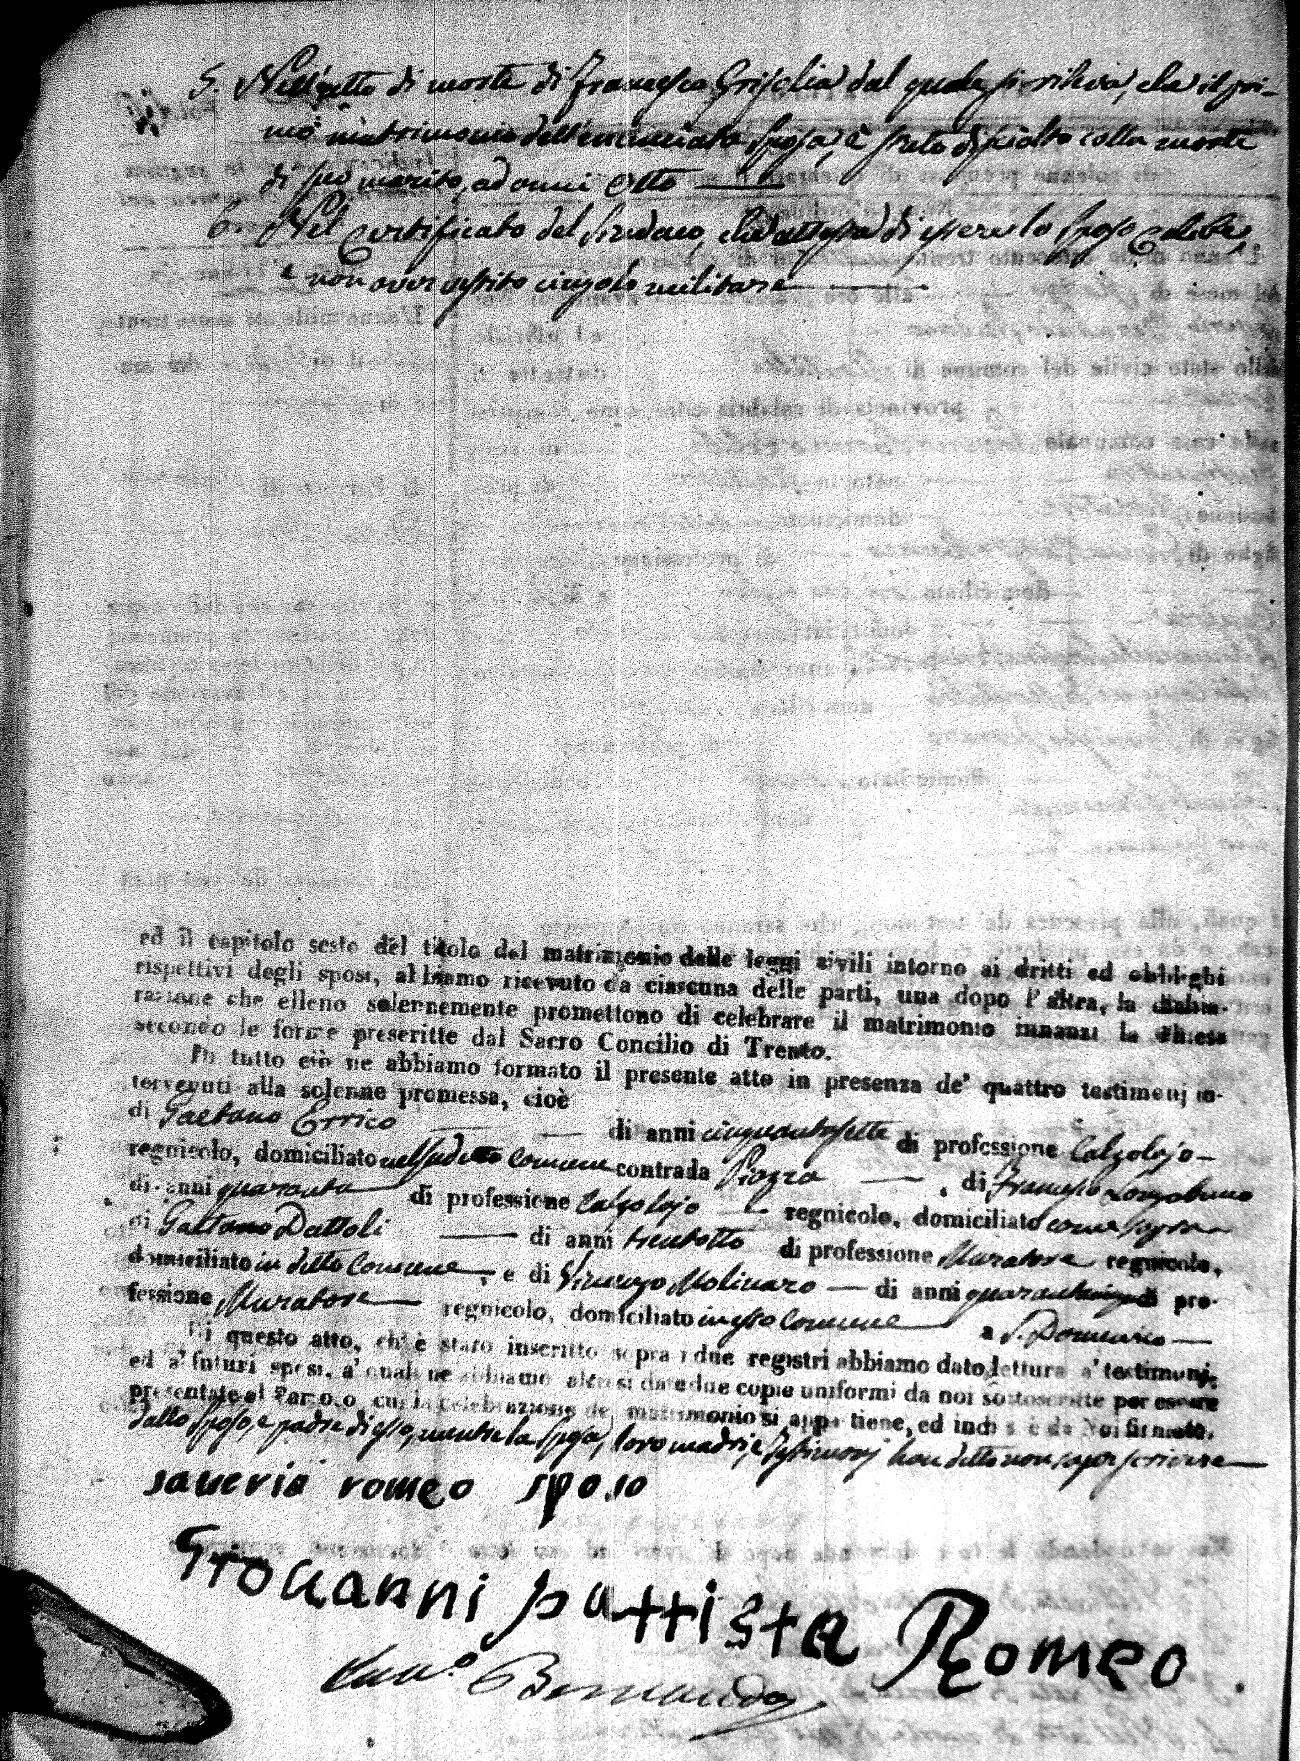 5. Nell'atto di morte di Francesco Griselia dal quale si rileva, che il pri-
mo matrimonio dell'enunciata Sposa, è stato disciolto colla morte
di suo marito, ad anni Otto
6. Nel Certificato del Sindaco, che attesta di essere lo Sposo Celibe,
e non aver vestito cingolo militare
ed il capitolo sesto del titolo del matrimonio delle leggi civili intorno ai dritti ed obblighi
rispettivi degli sposi, abbiamo ricevuto da ciascuna delle parti, una dopo l'altra, la dichia-
razione che elleno solennemente promettono di celebrare il matrimonio innanzi la chiesa
secondo le forme prescritte dal Sacro Concilio di Trento.
Di tutto ciò ne abbiamo formato il presente atto in presenza de' quattro testimonj in-
tervenuti alla solenne promessa, cioè
di Gaetano Errico di anni cinquantasette di professione Calzolajo
regnicolo, domiciliato nel sudetto Comune contrada Piazza, di Francesco Longobucco
di anni quaranta di professione Calzolajo regnicolo, domiciliato come sopra
di Gaetano Dattoli di anni trentotto di professione Muratore regnicolo,
domiciliato in detto Comune, e di Vincenzo Molinaro di anni quarantacinque di pro-
fessione Muratore regnicolo, domiciliato in esso Comune a S. Domenico
Di questo atto, ch'è stato inscritto sopra i due registri abbiamo dato lettura a' testimonj,
ed a' futuri sposi, a' quali ne abbiamo altresì date due copie uniformi da noi sottoscritte per essere
presentate al Parroco, cui la celebrazione del matrimonio si appartiene, ed indi s'è da Noi firmato,
dallo Sposo, e padre di esso, mentre la Sposa, loro madri, e Testimonj han detto non saper scrivere
saverio romeo sposo
Giovanni battista Romeo